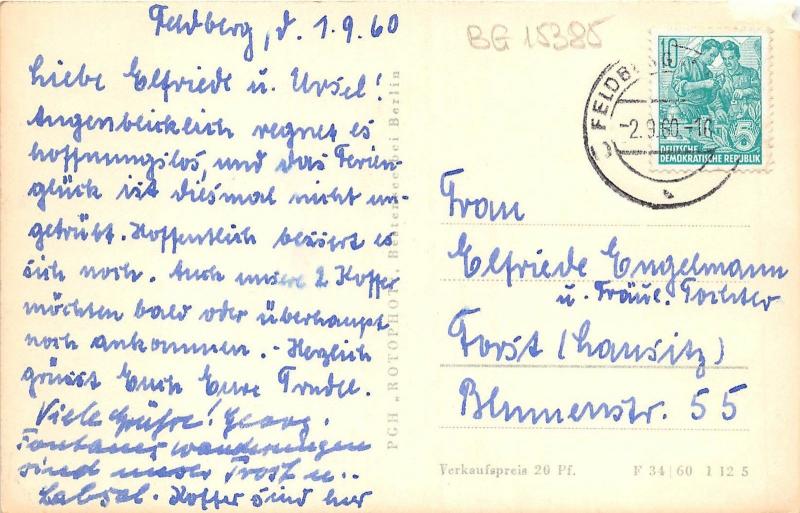 Feldberg, d. 1.9.60
Liebe Elfriede u. Ursel!
Augenblicklich regnet es
hoffnungslos, und das Ferien-
glück ist diesmal nicht un-
getrübt. Hoffentlich bessert es
sich noch. Auch unsere 2 Koffer
möchten bald oder überhaupt
noch ankommen. - Herzlich
grüsst Euch Eure Trudel.
Viele Grüße! Georg.
Fontanes wanderungen
sind unser Trost u.
Labsal. Koffer sind hier
PGH „ROTOPHOT", Bestensee bei Berlin
BG 15385
10
5
DEUTSCHE
DEMOKRATISCHE REPUBLIK
FELDBERG
-2.9.60.-16
Frau
Elfriede Engelmann
u. Fräul. Tochter
Forst (Lausitz)
Blumenstr. 55
Verkaufspreis 20 Pf. F 34|60 1 12 5